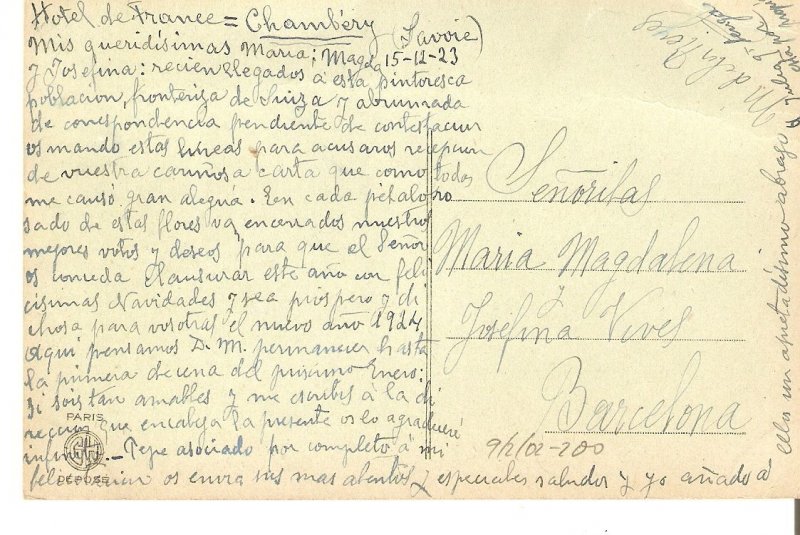 Hotel de France = Chambéry
(Savoie)
15-12-23
Mis queridísimas Maria, Magda
y Josefina: recien llegados á esta pintoresca
poblacion, fronteriza de Suiza y abrumada
de correspondencia pendiente de contestacion
os mando estas lineas para acusaros recepcion
de vuestra cariñosa carta que como todas
me causó gran alegria. En cada pétalo ro
sado de estas flores va encerrados nuestros
mejores votos y deseos para que el Señor
os conceda clausurar este año con feli
cisimas Navidades y sea prospero y di
choso para vosotras el nuevo año 1924
Aqui pensamos D. M. permanecer hasta
la primera decena del proximo Enero:
si sois tan amables y me escribis á la di
reccion que encabeza la presente os lo agradeceré
Pepe asociado por completo á mi
felicitacion os envia sus mas atentos y especiales saludos y yo añado á
ellos un apretadisimo abrazo
Señoritas
Maria Magdalena
y
Josefina Vives
Barcelona
9/2/02-200
PARIS
DEPOSE